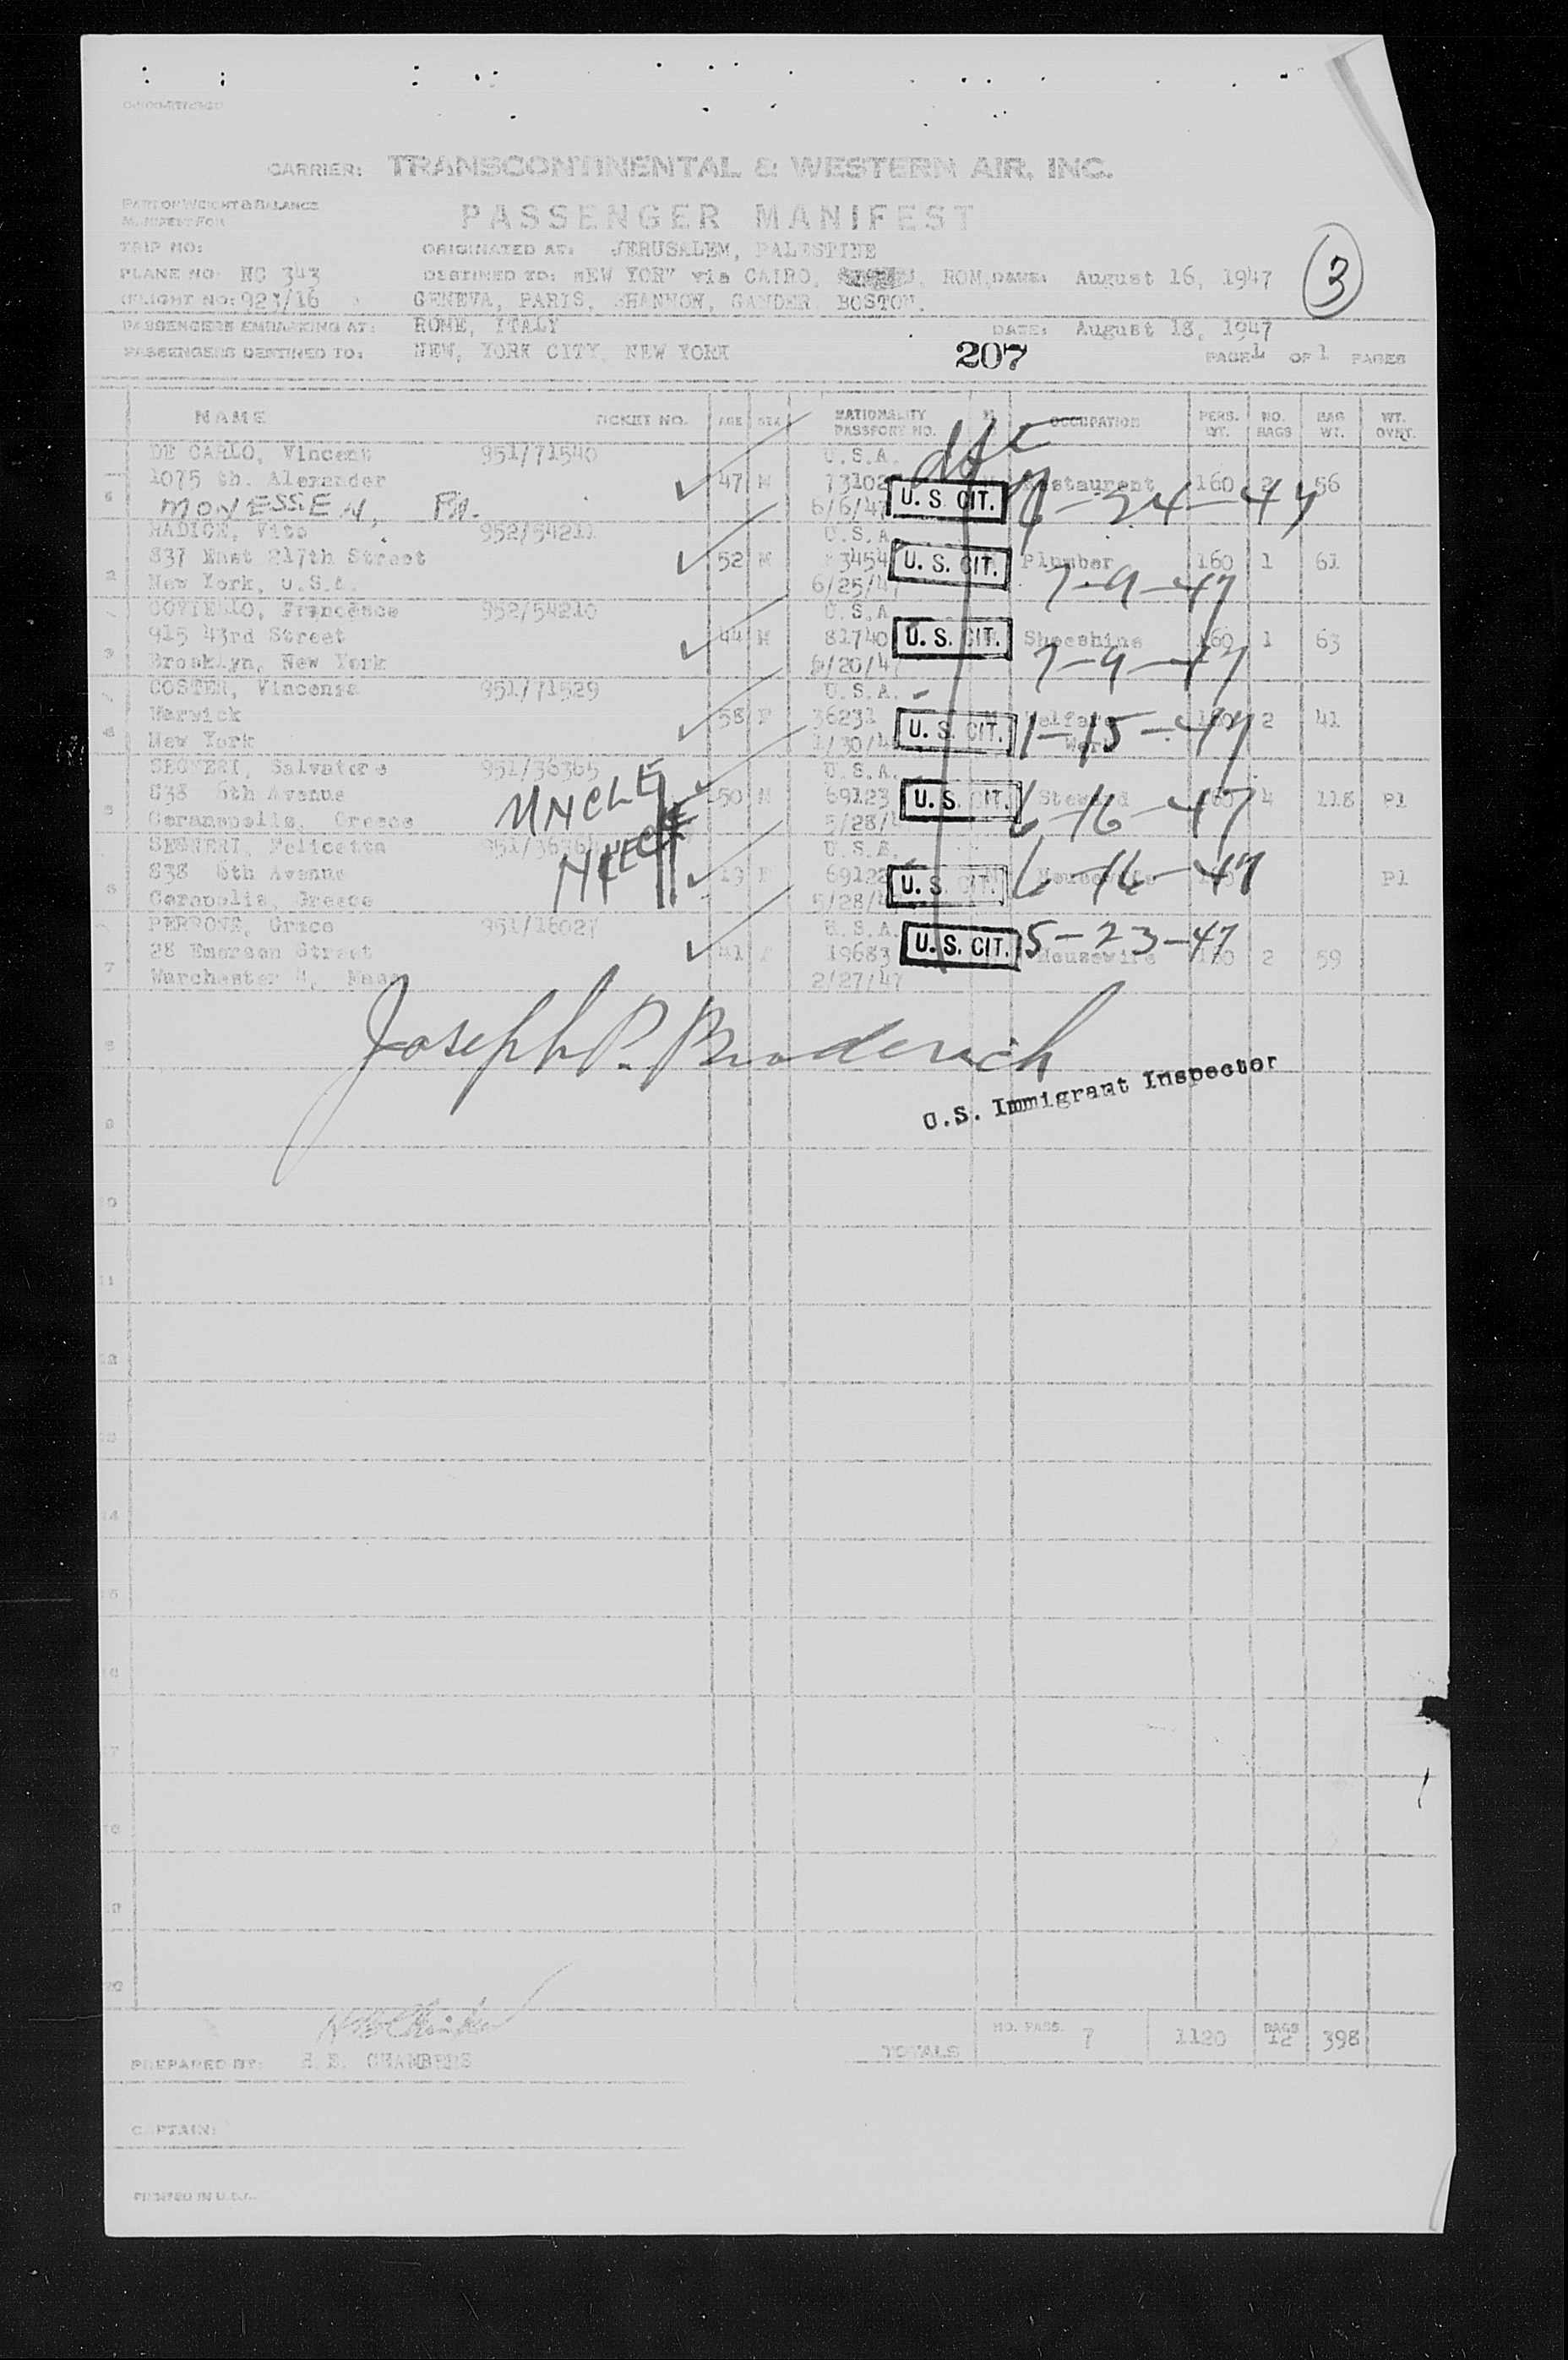 CARRIER: TRANSCONTINENTAL & WESTERN AIR, INC.
PART OF WEIGHT & BALANCE
MANIFEST FOR
PASSENGER MANIFEST
TRIP NO:
ORIGINATED AT: JERUSALEM, PALESTINE
PLANE NO: NC 343
DESTINED TO: NEW YORK via CAIRO, ROM, DATE: August 16, 1947
3
FLIGHT NO: 923/16
GENEVA, PARIS, SHANNON, GANDER BOSTON.
PASSENGERS EMBARKING AT: ROME, ITALY DATE: August 18, 1947
PASSENGERS DESTINED TO: NEW, YORK CITY, NEW YORK 207 PAGE 1 OF 1 PAGES
NAME TICKET NO. AGE SEX NATIONALITY PASSPORT NO. OCCUPATION PERS. WT. NO. BAGS BAG WT. WT. OVRT.
DE CARLO, Vincent 951/71540 U.S.A.
1075 Alexander 47 M 73102 Restaurent 160 2 56
MONESSEN, PA. 6/6/47 U. S. CIT. 24-47
Vito 952/54211 U.S.A.
837 East 217th Street 52 M 3454 U. S. CIT. Plumber 160 1 61
2 New York, U.S.A. 6/25/47 7-9-47
COVIELLO, Francesco 952/54210 U.S.A.
915 43rd Street 44 M 81740 U. S. CIT. Shoeshine 160 1 63
3 Brooklyn, New York /20/47 7-9-47
COSTER, Vincenza 951/71529 U.S.A.
Warwick 58 F 36231 U. S. CIT. Welfare 2 41
4 New York /30/4 Work 1-15-47
SEGNERI, Salvatore 951/36365 U.S.A.
838 6th Avenue UNCLE 50 M 69123 U. S. CIT. Steward 160 4 118 Pl
5 Greece 5/28/4 6-16-47
SEGNERI, Felicetta U.S.A.
838 6th Avenue NIECE 19 F 6912 U. S. CIT. 6-16-47 Pl
6 Greece 5/28/4
PERRONE, Grace 951/16027 U.S.A.
28 Emerson Street 41 F 19683 U. S. CIT. Housewife 2 59
7 Mass 2/27/47 5-23-47
Joseph P. Broderick
8
U.S. Immigrant Inspector
9
10
11
12
13
14
15
16
17
18
19
20
PREPARED BY: H. E. CHAMBERS
TOTALS NO. PASS. 7 1120 BAGS 12 398
CAPTAIN:
PRINTED IN U.S.A.